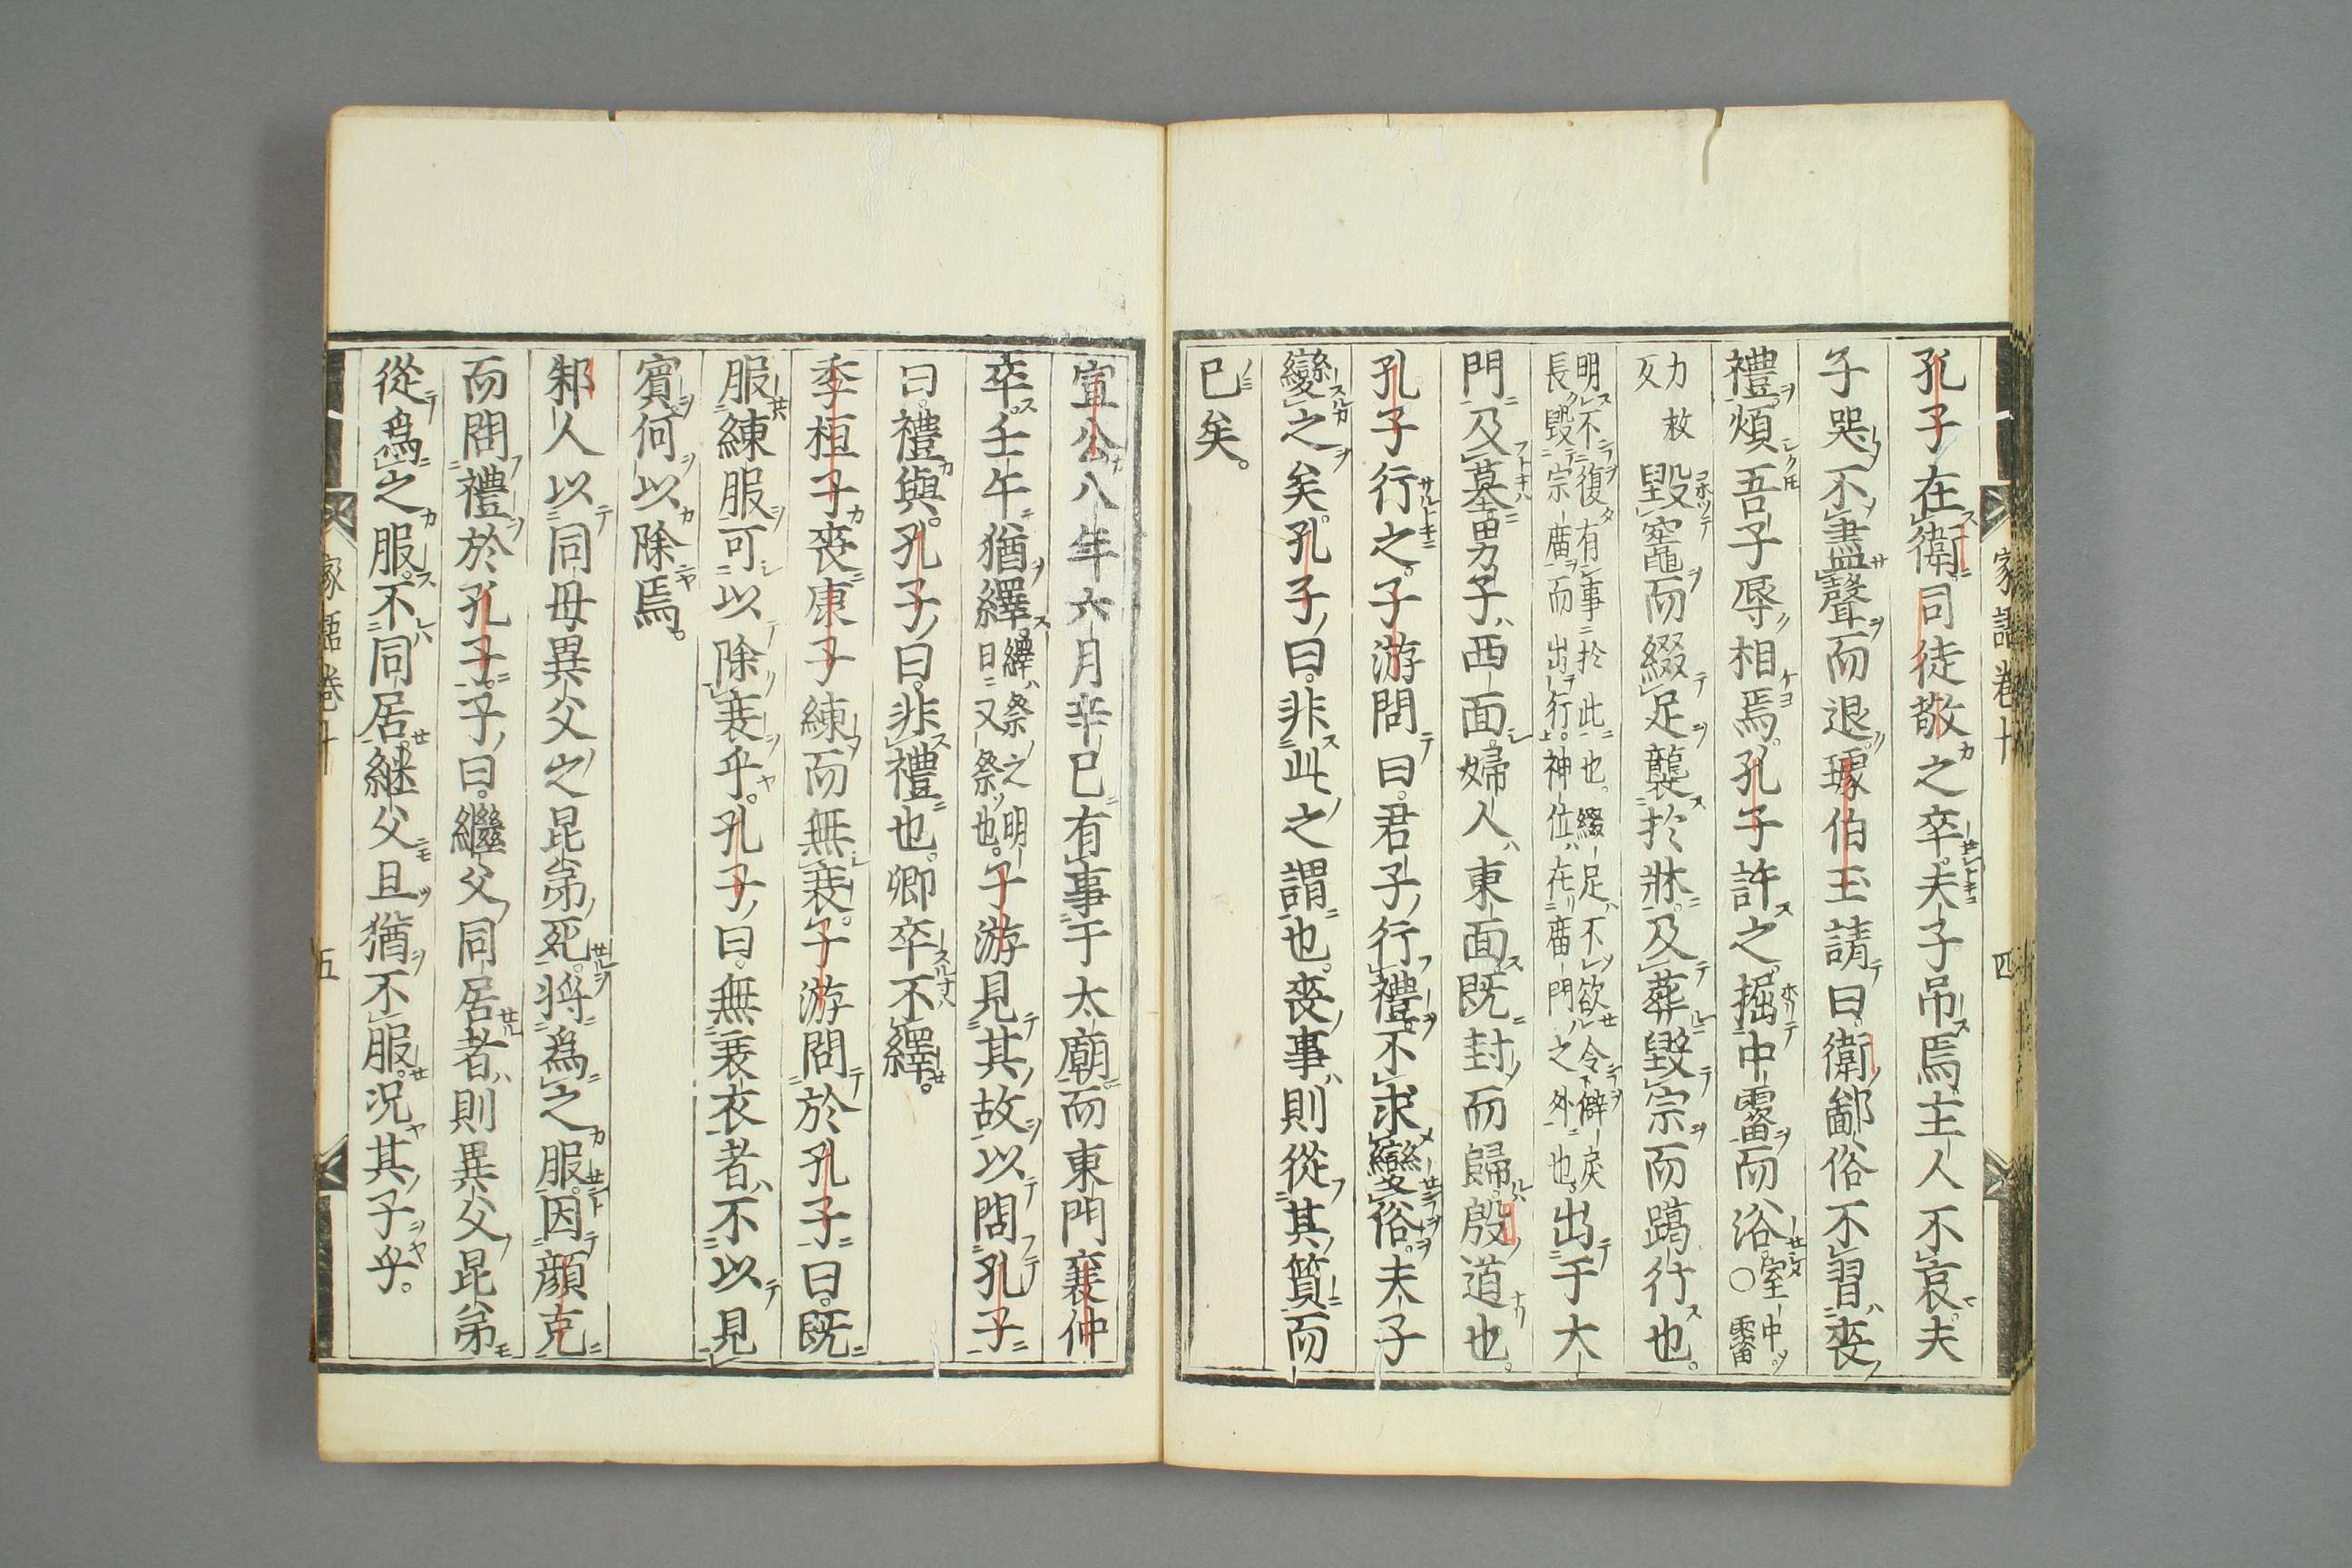 孔子在衛司徒敬之卒夫子吊焉主人不哀夫
子哭不盡聲而退璩伯玉請曰衛鄙俗不習喪
禮煩吾子辱相焉孔子許之掘中霤而浴○室中霤
力救
毀竈而綴足襲於牀及葬毀宗而躐行也
明不復有事於此也綴足不欲令僻戾
長毀宗廟而出行神位在廟門之外也出于大
門及墓男子西面婦人東面既封而歸殷道也
孔子行之子游問曰君子行禮不求變俗夫子
變之矣孔子曰非此之謂也喪事則從其質而
已矣
家語卷十
四
宣公八年六月辛巳有事于太廟而東門襄仲
卒壬午猶繹繹祭之明日又祭也子游見其故以問孔子
曰禮與孔子曰非禮也卿卒不繹
季桓子喪康子練而無衰子游問於孔子曰既
服練服可以除衰乎孔子曰無衰衣者不以見
賓何以除焉
邾人以同母異父之昆弟死將為之服因顏克
而問禮於孔子子曰繼父同居者則異父昆弟
從為之服不同居継父且猶不服况其子乎
家語卷十
五